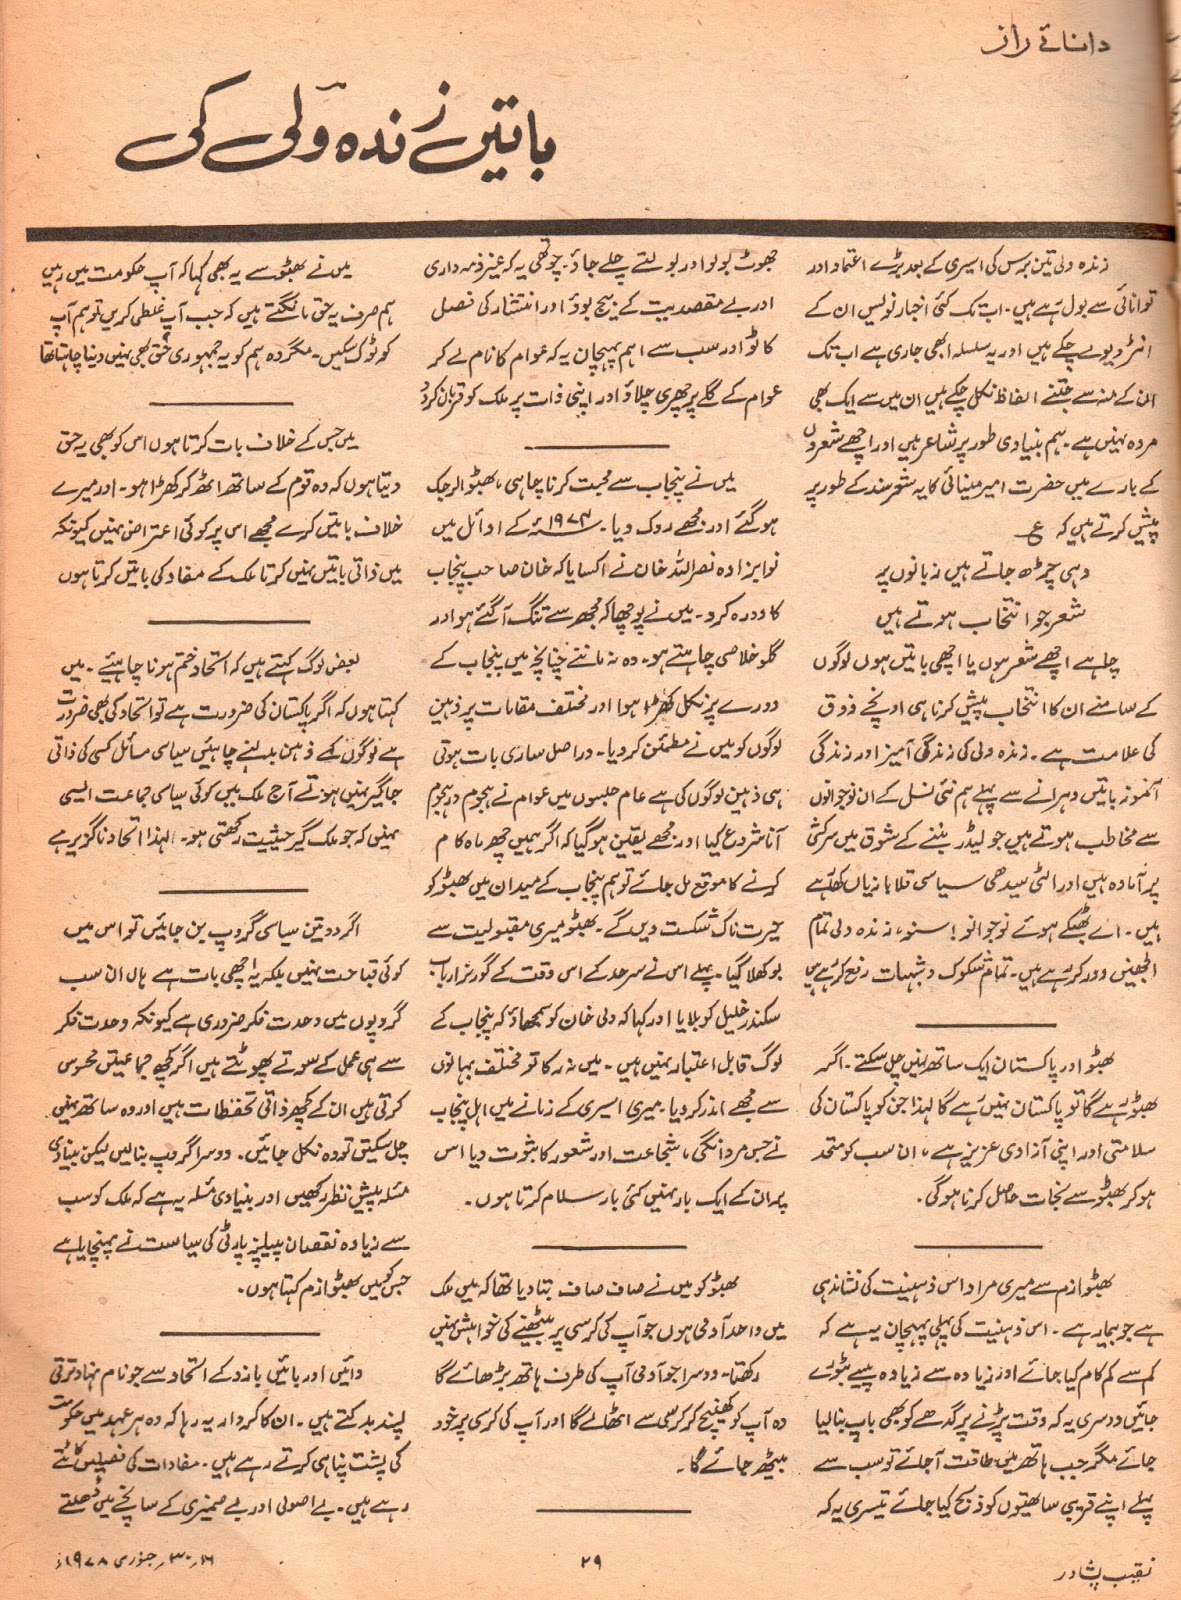 دانائے راز
باتیں زندہ ولی کی
زندہ ولی تین برس کی اسیری کے بعد بڑے اعتماد اور
توانائی سے بول رہے ہیں۔ اب تک کئی اخبار نویس ان کے
انٹرویو لے چکے ہیں اور یہ سلسلہ ابھی جاری ہے اب تک
ان کے منہ سے جتنے الفاظ نکل چکے ہیں ان میں سے ایک بھی
مردہ نہیں ہے۔ ہم بنیادی طور پر شاعر ہیں اور اچھے شعروں
کے بارے میں حضرت امیر مینائی کا یہ شعر سند کے طور پر
پیش کرتے ہیں کہ ع
وہی چڑھ جاتے ہیں زبانوں پر
شعر جو انتخاب ہوتے ہیں
چاہے اچھے شعر ہوں یا اچھی باتیں ہوں لوگوں
کے سامنے ان کا انتخاب پیش کرنا ہی اونچے ذوق
کی علامت ہے۔ زندہ ولی کی زندگی آمیز اور زندگی
آموز باتیں دہرانے سے پہلے ہم نئی نسل کے ان نوجوانوں
سے مخاطب ہوتے ہیں جو لیڈر بننے کے شوق میں سرکشی
پر آمادہ ہیں اور الٹی سیدھی سیاسی قلابازیاں کھا رہے
ہیں۔ اے بھٹکے ہوئے نوجوانو! سنو، زندہ ولی تمام
الجھنیں دور کر رہے ہیں۔ تمام شکوک و شبہات رفع کر رہے ہیں
بھٹو اور پاکستان ایک ساتھ نہیں چل سکتے۔ اگر
بھٹو رہے گا تو پاکستان نہیں رہے گا لہذا جن کو پاکستان کی
سلامتی اور اپنی آزادی عزیز ہے، ان سب کو متحد
ہو کر بھٹو سے نجات حاصل کرنا ہو گی۔
بھٹو ازم سے میری مراد اس ذہنیت کی نشاندہی
ہے جو بیمار ہے۔ اس ذہنیت کی پہلی پہچان یہ ہے کہ
کم سے کم کام کیا جائے اور زیادہ سے زیادہ پیسے بٹورے
جائیں دوسری یہ کہ وقت پڑنے پر گدھے کو بھی باپ بنا لیا
جائے مگر جب ہاتھ میں طاقت آ جائے تو سب سے
پہلے اپنے قریبی ساتھیوں کو ذبح کیا جائے تیسری یہ کہ
جھوٹ بولو اور بولتے چلے جاؤ۔ چوتھی یہ کہ غیر ذمہ داری
اور بے مقصدیت کے بیج بوؤ اور انتشار کی فصل
کاٹو اور سب سے اہم پہچان یہ کہ عوام کا نام لے کر
عوام کے گلے پر چھری چلاؤ اور اپنی ذات پر ملک کو قربان کر دو
میں نے پنجاب سے محبت کرنا چاہی، بھٹو الرجک
ہو گئے اور مجھے روک دیا۔ ۱۹۷۴ء کے اوائل میں
نوابزادہ نصر اللہ خان نے اکسایا کہ خان صاحب پنجاب
کا دورہ کرو۔ میں نے پوچھا کہ مجھ سے تنگ آ گئے ہو اور
گلو خلاصی چاہتے ہو۔ وہ نہ مانتے چنانچہ میں پنجاب کے
دورے پر نکل کھڑا ہوا اور مختلف مقامات پر ذہین
لوگوں کو میں نے مطمئن کر دیا۔ دراصل ساری بات ہوتی
ہی ذہین لوگوں کی ہے عام جلسوں میں عوام نے ہجوم در ہجوم
آنا شروع کیا اور مجھے یقین ہو گیا کہ اگر ہمیں چھ ماہ کام
کرنے کا موقع مل جائے تو ہم پنجاب کے میدان میں بھٹو کو
حیرت ناک شکست دیں گے۔ بھٹو میری مقبولیت سے
بوکھلا گیا۔ پہلے اس نے سرحد کے اس وقت کے گورنر ارباب
سکندر خلیل کو بلایا اور کہا کہ ولی خان کو سمجھاؤ کہ پنجاب کے
لوگ قابل اعتبار نہیں ہیں۔ میں نہ رکا تو مختلف بہانوں
سے مجھے اندر کر دیا۔ میری اسیری کے زمانے میں اہل پنجاب
نے جس مردانگی، شجاعت اور شعور کا ثبوت دیا اس
پر ان کے ایک بار نہیں کئی بار سلام کرتا ہوں۔
بھٹو کو میں نے صاف صاف بتا دیا تھا کہ میں ملک
میں واحد آدمی ہوں جو آپ کی کرسی پر بیٹھنے کی خواہش نہیں
رکھتا۔ دوسرا جو آدمی آپ کی طرف ہاتھ بڑھائے گا
وہ آپ کو کھینچ کر کرسی سے اٹھا لے گا اور آپ کی کرسی پر خود
بیٹھ جائے گا۔
میں نے بھٹو سے یہ بھی کہا کہ آپ حکومت میں رہیں
ہم صرف یہ حق مانگتے ہیں کہ جب آپ غلطی کریں تو ہم آپ
کو ٹوک سکیں۔ مگر وہ ہم کو یہ جمہوری حق بھی نہیں دینا چاہتا تھا
میں جس کے خلاف بات کرتا ہوں اس کو بھی یہ حق
دیتا ہوں کہ وہ قوم کے ساتھ اٹھ کر کھڑا ہو۔ اور میرے
خلاف باتیں کرے مجھے اس پر کوئی اعتراض نہیں کیونکہ
میں ذاتی باتیں نہیں کرتا ملک کے مفاد کی باتیں کرتا ہوں
بعض لوگ کہتے ہیں کہ اتحاد ختم ہونا چاہیئے۔ میں
کہتا ہوں کہ اگر پاکستان کی ضرورت ہے تو اتحاد کی بھی ضرورت
ہے لوگوں کے ذہن بدلنے چاہئیں سیاسی مسائل کسی کی ذاتی
جاگیر نہیں ہوتے آج ملک میں کوئی سیاسی جماعت ایسی
نہیں کہ جو ملک گیر حیثیت رکھتی ہو۔ لہذا اتحاد ناگزیر ہے
اگر دو تین سیاسی گروپ بن جائیں تو اس میں
کوئی قباحت نہیں بلکہ یہ اچھی بات ہے ہاں ان سب
گروپوں میں وحدت فکر ضروری ہے کیونکہ وحدت فکر
سے ہی عمل کے سوتے پھوٹتے ہیں اگر کچھ جماعتیں محسوس
کرتی ہیں ان کے کچھ ذاتی تحفظات ہیں اور وہ ساتھ نہیں
چل سکتیں تو وہ نکل جائیں۔ دوسرا گروپ بنا لیں لیکن بنیادی
مسئلہ پیش نظر رکھیں اور بنیادی مسئلہ یہ ہے کہ ملک کو سب
سے زیادہ نقصان پیپلز پارٹی کی سیاست نے پہنچایا ہے
جس کو میں بھٹو ازم کہتا ہوں۔
دائیں اور بائیں بازو کے اتحاد سے جو نام نہاد ترقی
پسند بدکتے ہیں۔ ان کا کردار یہ رہا کہ وہ ہر عہد میں حکومت
کی پشت پناہی کرتے رہے ہیں۔ مفادات کی فصلیں کاٹتے
رہے ہیں۔ بے اصولی اور بے ضمیری کے سانچے میں ڈھلتے
نقیب پشاور
۲۹
۱۶۔۳۰ جنوری ۱۹۷۸ء